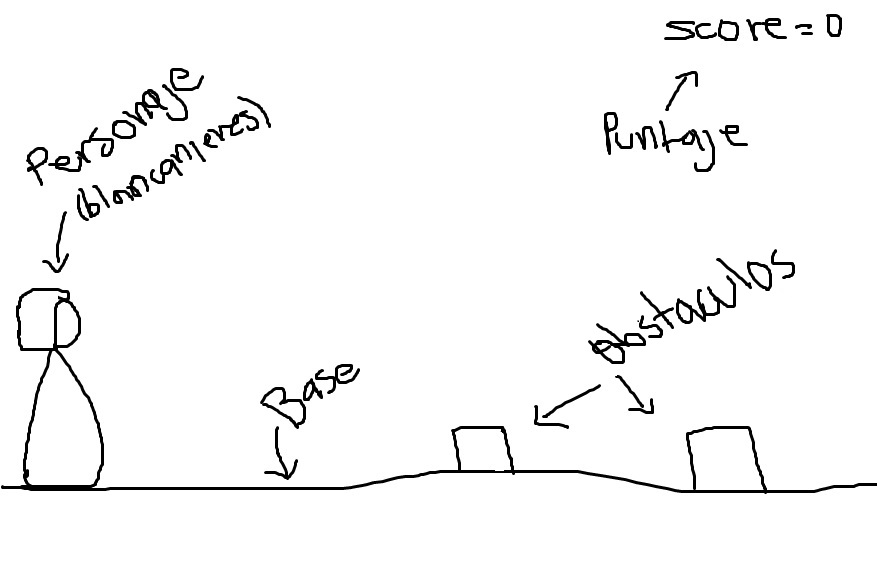 score = 0
Puntaje
Personaje
(blancanieves)
obstaculos
Base